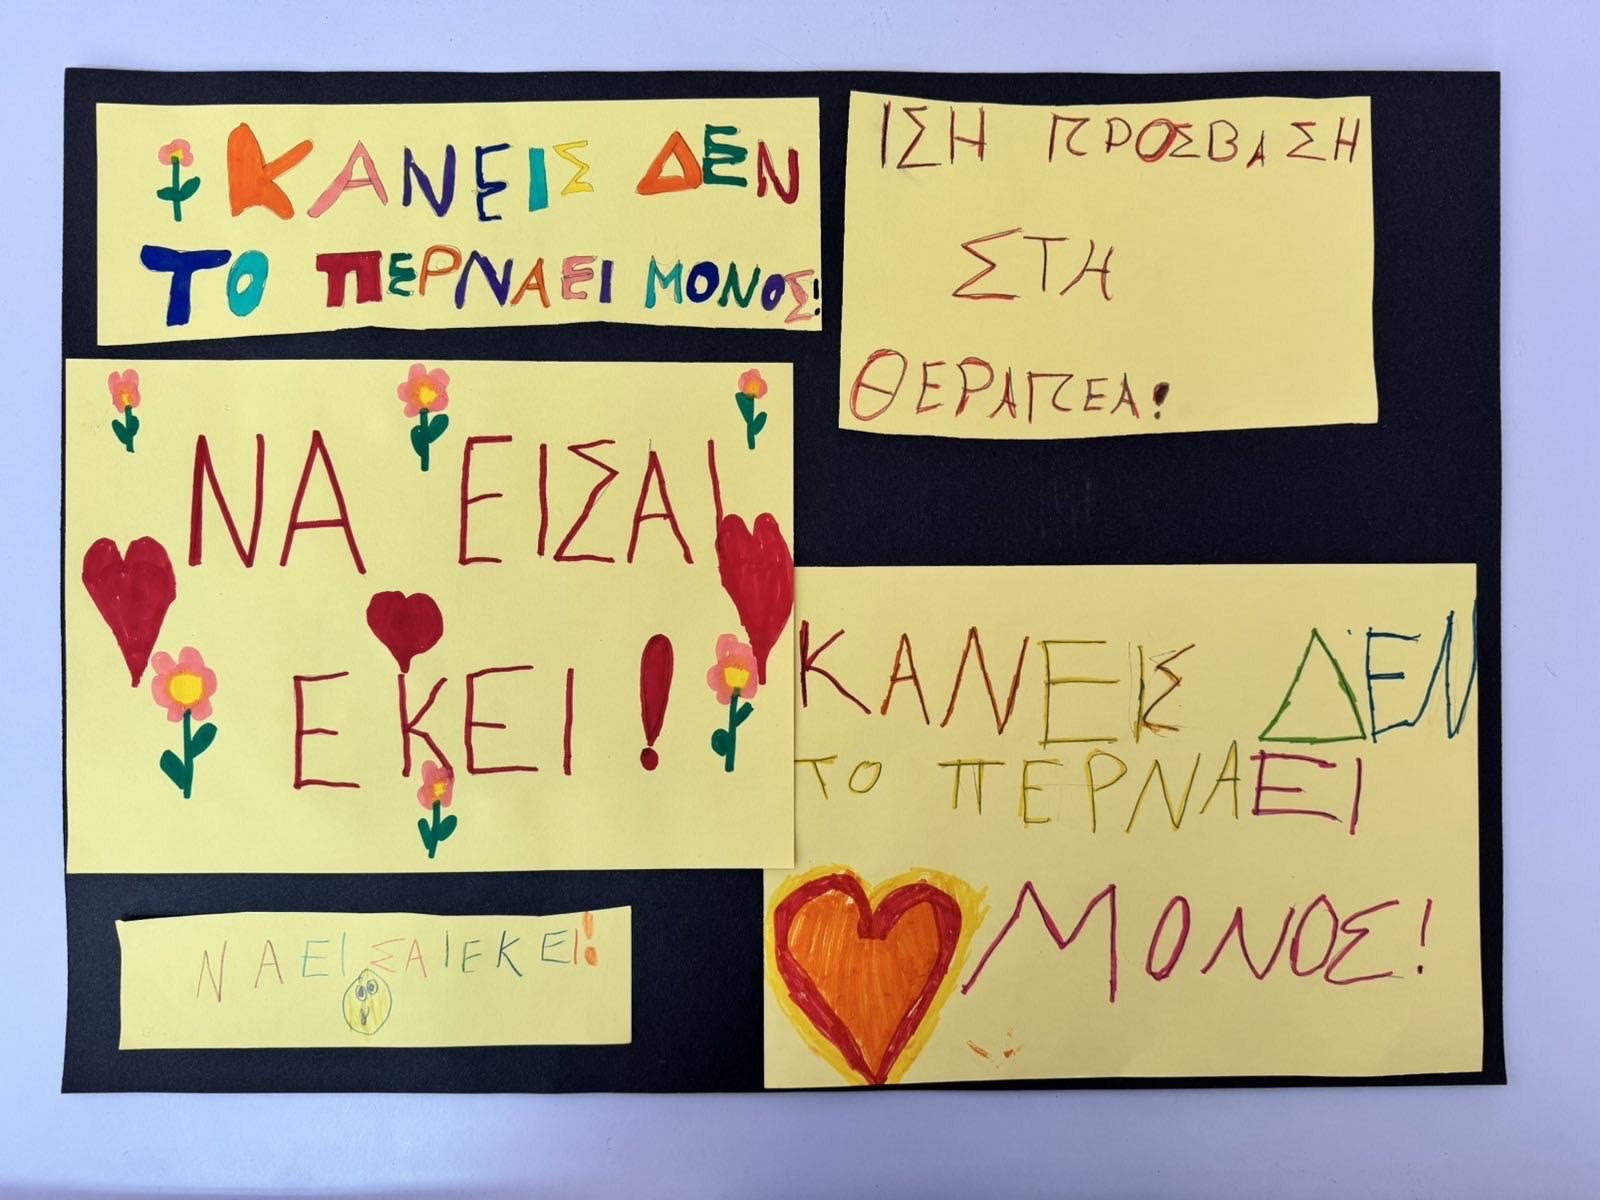 ΚΑΝΕΙΣ ΔΕΝ
ΤΟ ΠΕΡΝΑΕΙ ΜΟΝΟΣ!
ΙΣΗ ΠΡΟΣΒΑΣΗ
ΣΤΗ
ΘΕΡΑΠΕΑ!
ΝΑ ΕΙΣΑΙ
ΕΚΕΙ!
ΚΑΝΕΙΣ ΔΕΝ
ΤΟ ΠΕΡΝΑΕΙ
ΜΟΝΟΣ!
ΝΑ ΕΙΣΑΙ ΕΚΕΙ!